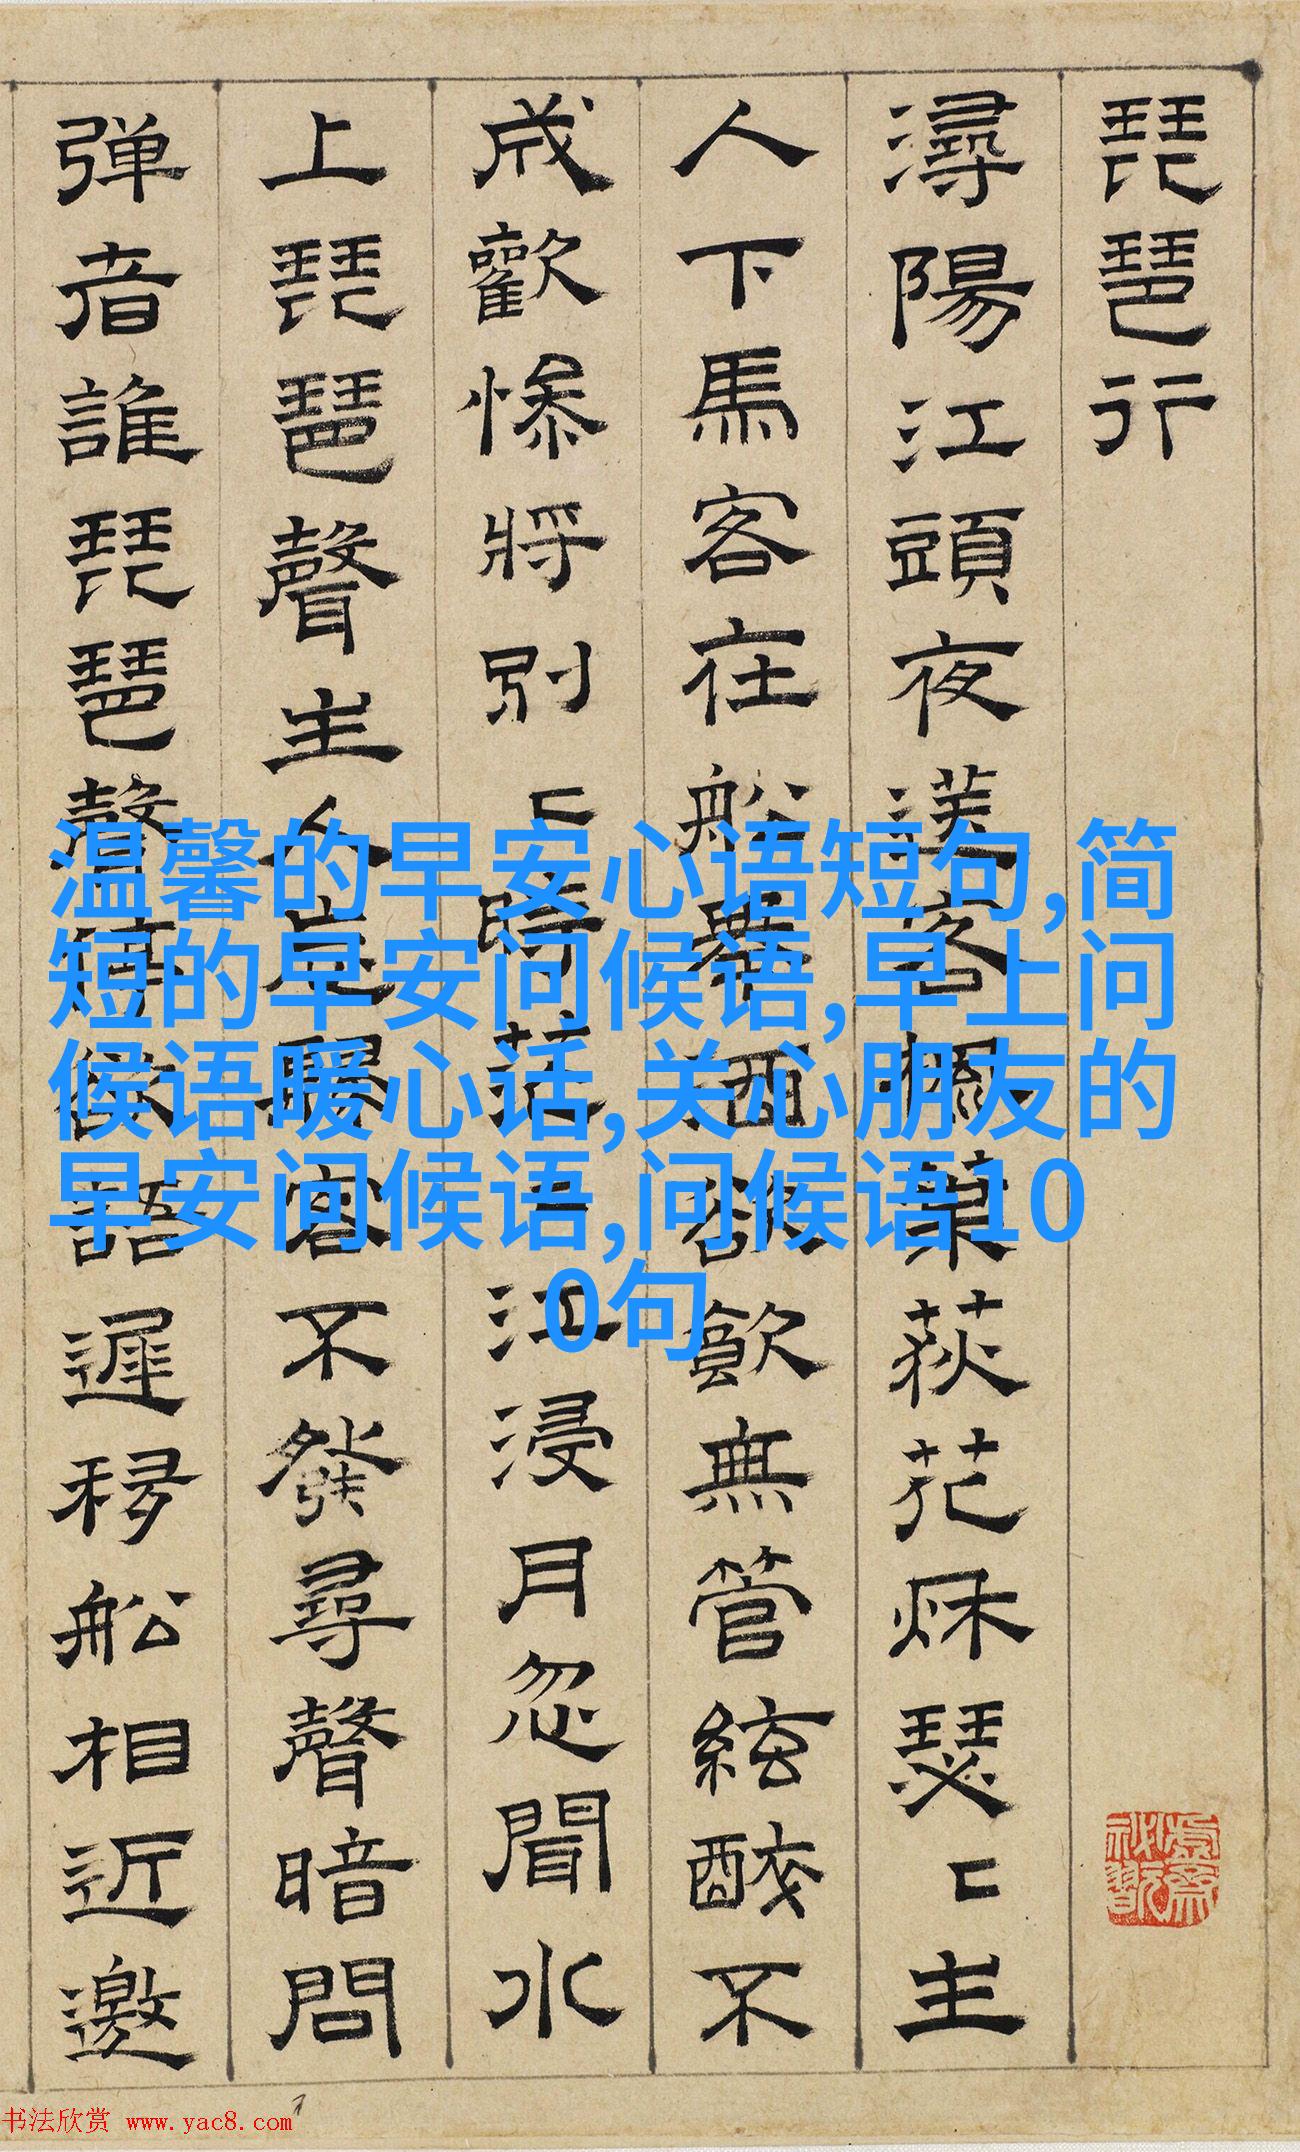 琵琶行
潯陽江頭夜送客楓葉荻花秋瑟〻主
人下馬客在船舉酒欲飲無管絃醉不
成歡慘將別〻時茫〻江浸月忽聞水
上琵琶聲主人忘歸客不發尋聲暗問
弹者誰琵琶聲停欲語遲移船相近邀
温馨的早安心语短句,简
短的早安问候语,早上问
候语暖心话,关心朋友的
早安问候语,问候语10
0句
书法欣赏 www.yac8.com